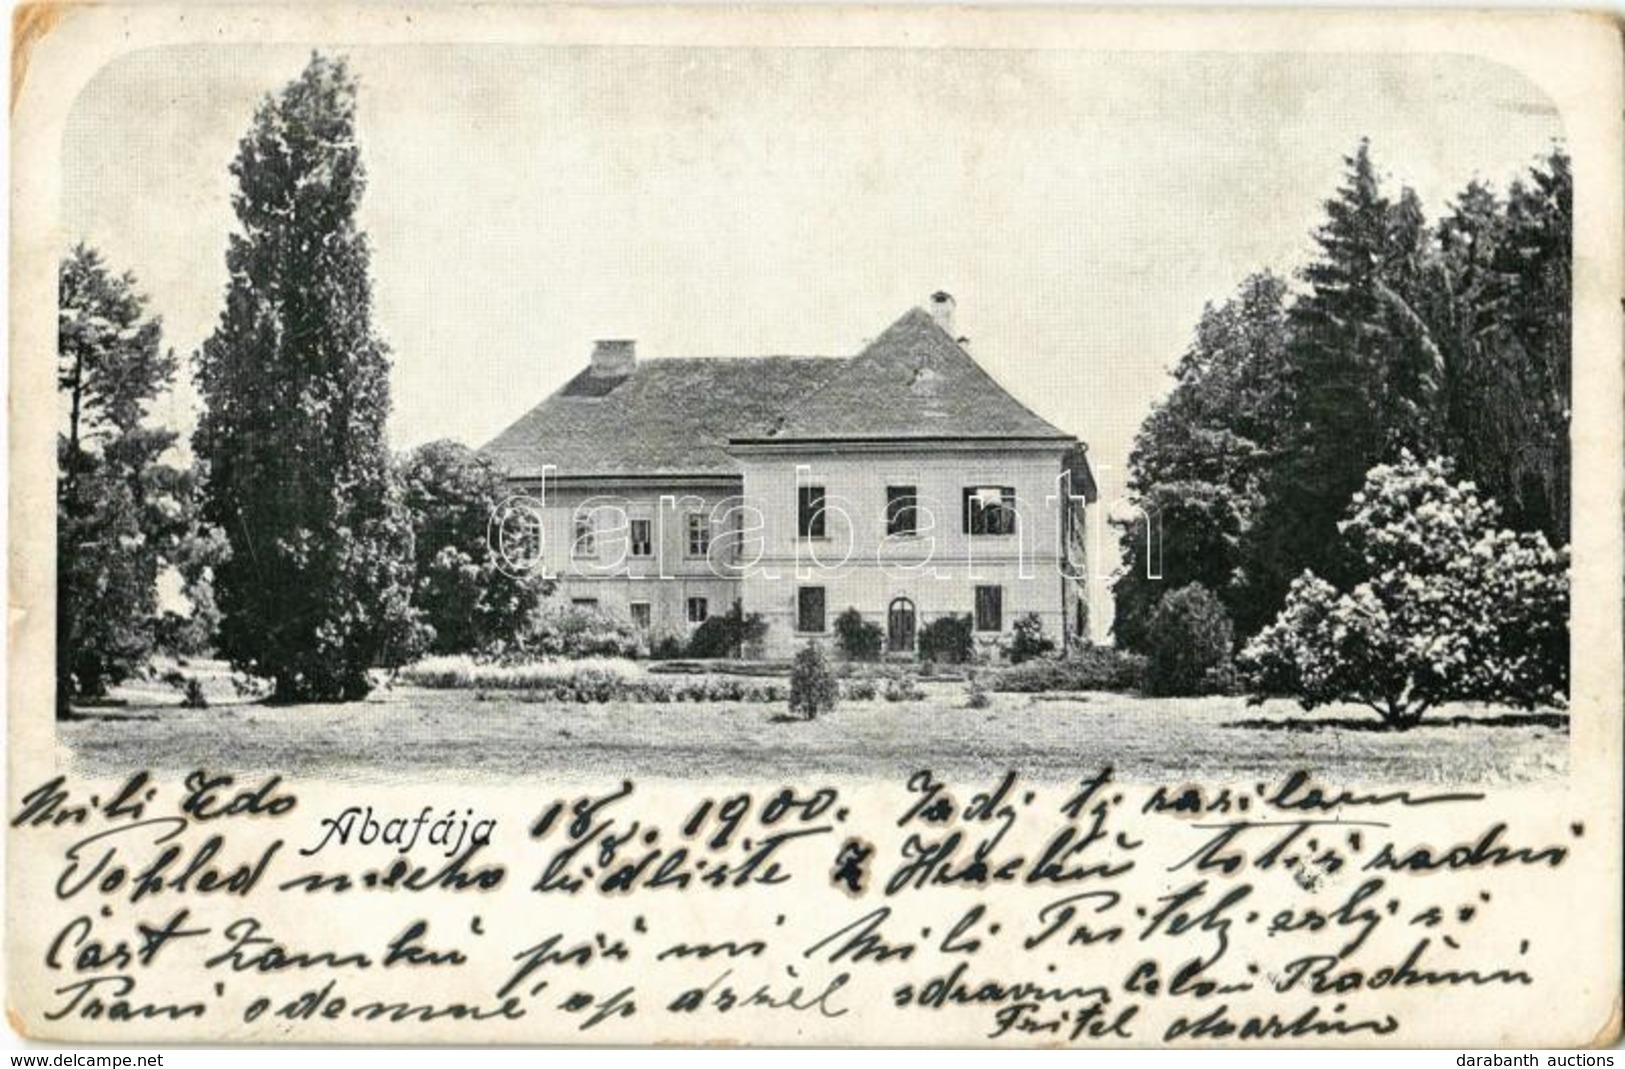 darabanth
Mili Edo
Abafája
18/8. 1900. Tady ty zasilam
Pohled mecho bidliste z Hracku totiž zadni
Čast Zamku piš mi Mili Pritely. esly si
Prani odemne op držel zdravim Celou Rodinu
Pritel Martin
www.delcampe.net
darabanth auctions